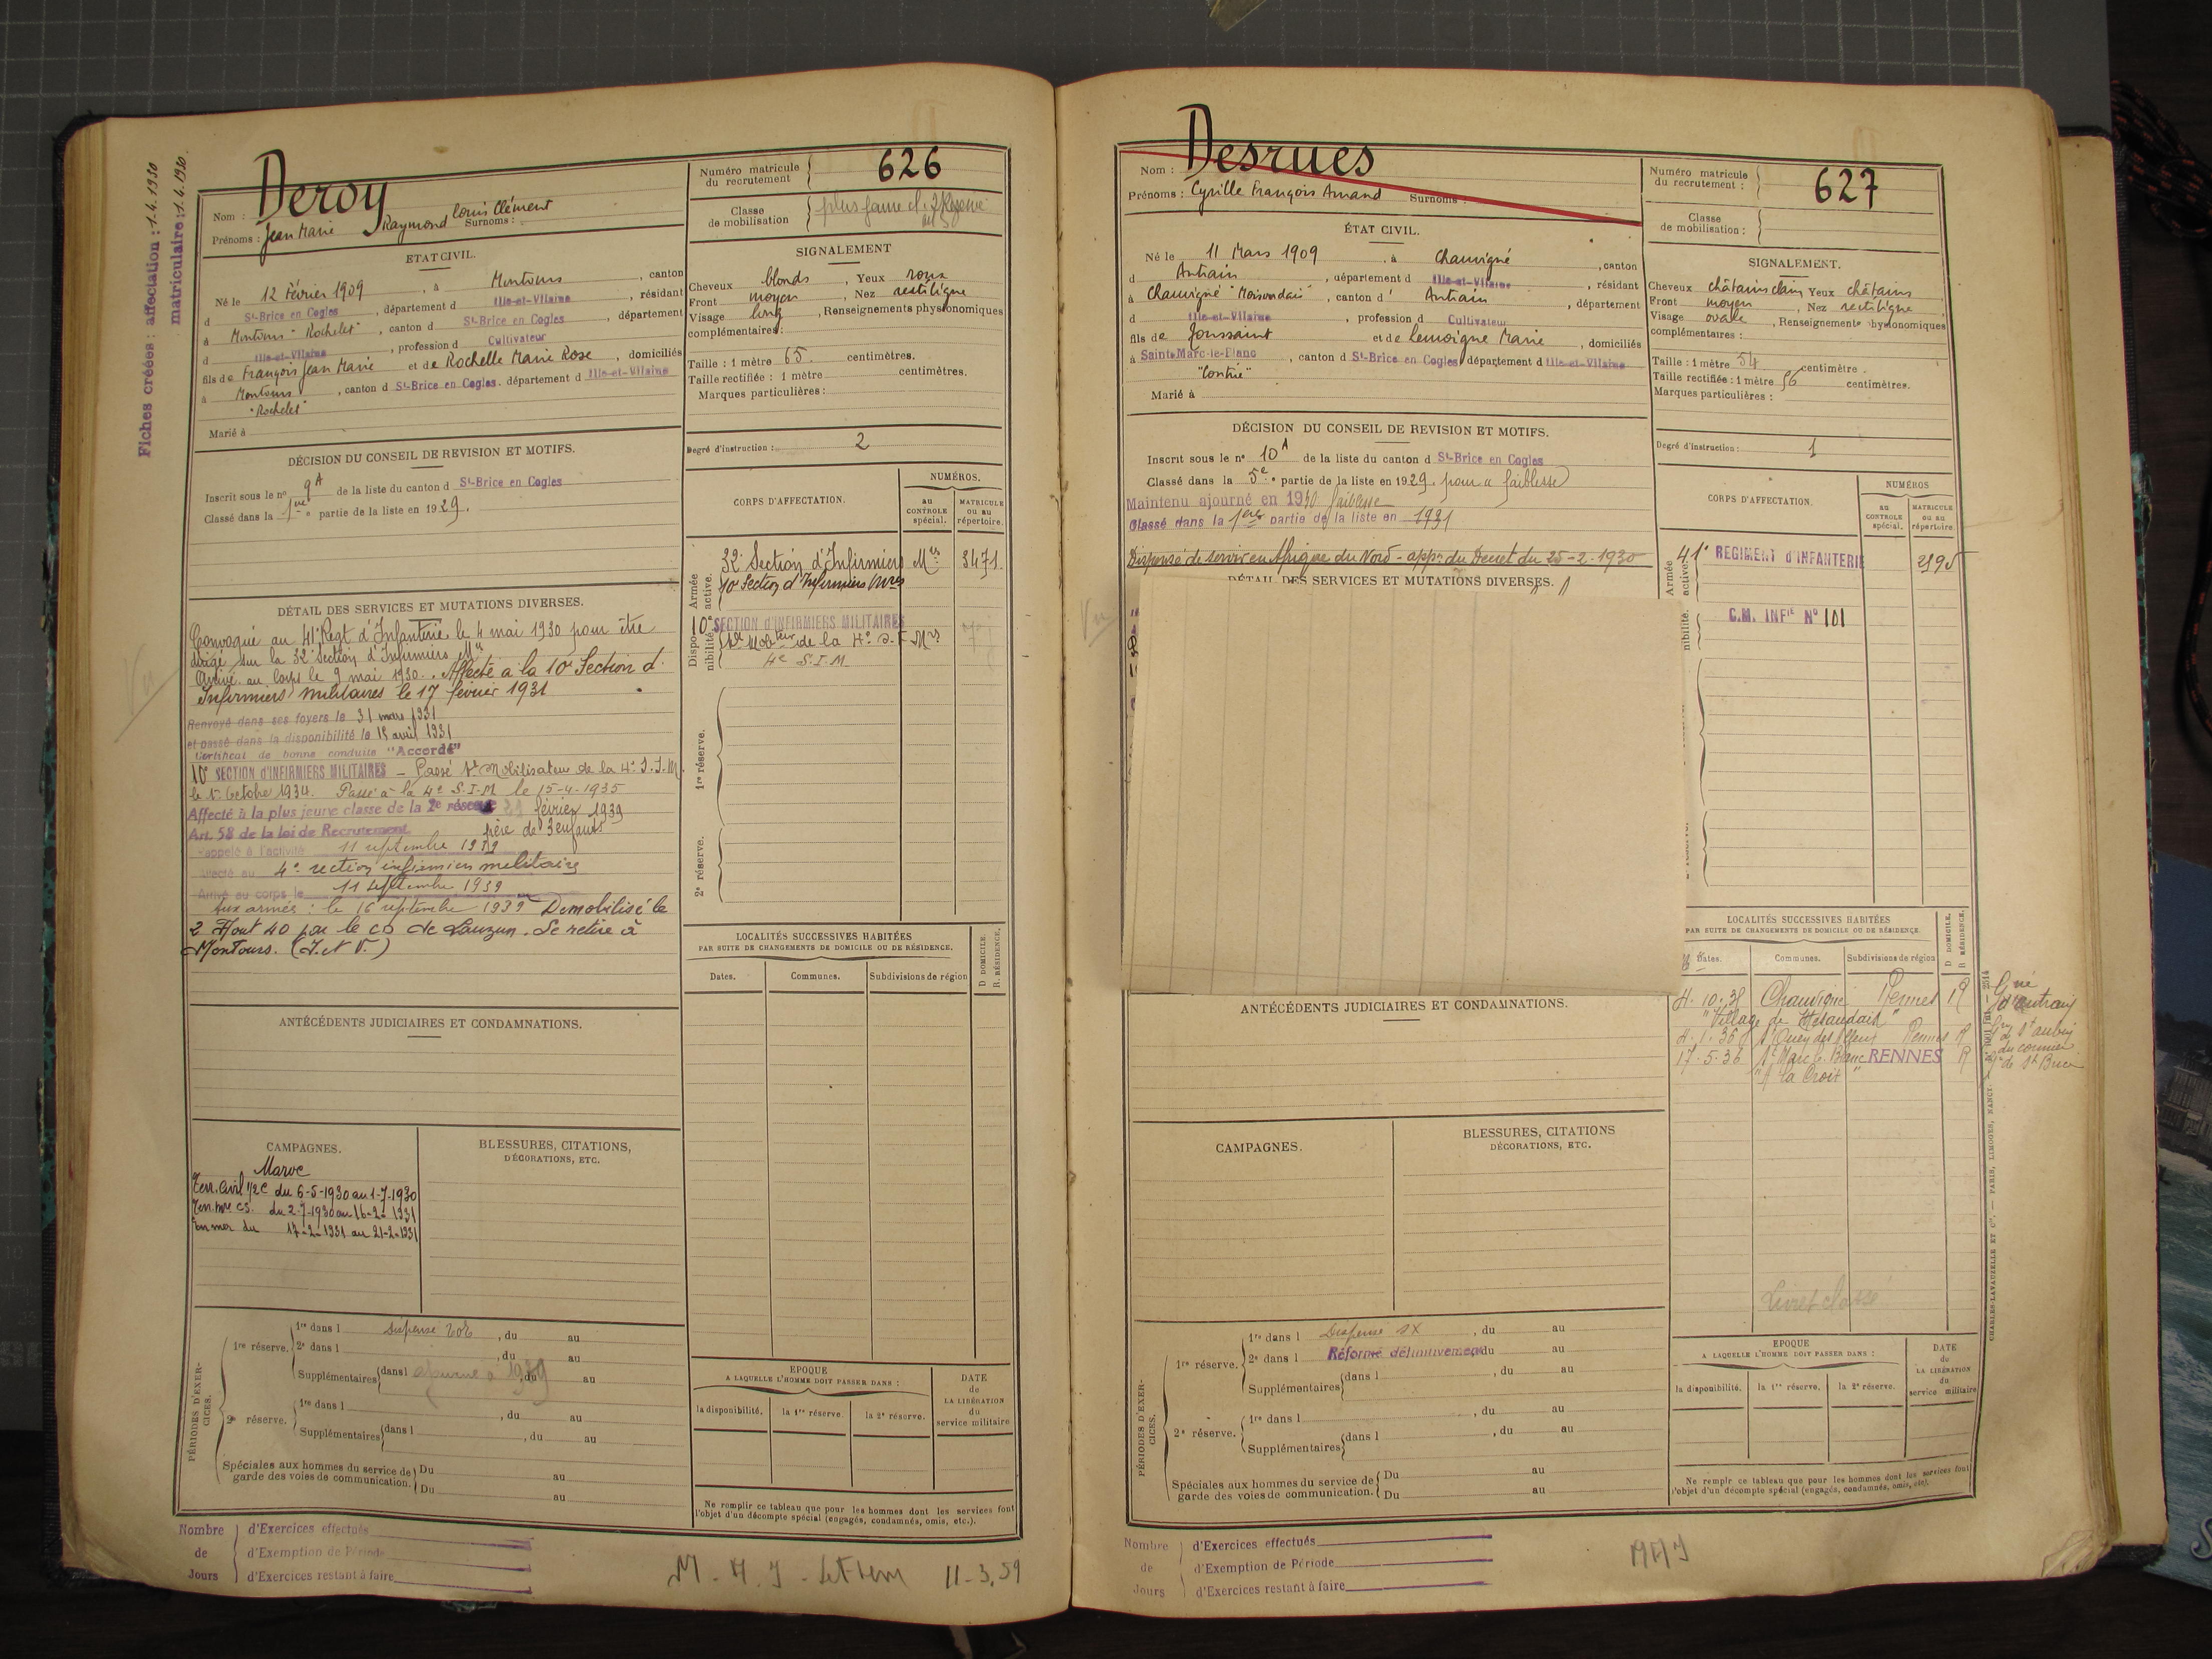 Fiches créées : affectation : 1-4.1930
matriculaire : 1.4.1930.
Nom : Deroy
Prénoms : Jean Marie Raymond Louis Clément Surnoms :
Numéro matricule du recrutement 626
Classe de mobilisation
ETAT CIVIL.
Né le 12 Février 1909, à Montours, canton
d St-Brice en Cogles, département d Ille-et-Vilaine, résidant
à Montours "Rochelet", canton d St-Brice en Cogles, département
d Ille-et-Vilaine, profession d Cultivateur
fils de François Jean Marie et de Rochelle Marie Rose, domiciliés
à Montours, canton d St-Brice en Cogles. département d Ille-et-Vilaine
"Rochelet"
Marié à
SIGNALEMENT
Cheveux blonds, Yeux roux
Front moyen, Nez rectiligne
Visage long, Renseignements physionomiques
complémentaires :
Taille : 1 mètre 65. centimètres.
Taille rectifiée : 1 mètre centimètres.
Marques particulières :
Degré d'instruction : 2
DÉCISION DU CONSEIL DE REVISION ET MOTIFS.
Inscrit sous le no 9A de la liste du canton d St-Brice en Cogles
Classé dans la 1re partie de la liste en 1929.
CORPS D'AFFECTATION.
NUMÉROS.
au CONTROLE spécial.
MATRICULE ou au répertoire.
Armée active.
32e Section d'Infirmiers Mres 3471.
10e Section d'Infirmiers Mres
Disponibilité.
10e SECTION D'INFIRMIERS MILITAIRES
4e S.I.M
1re réserve.
2e réserve.
DÉTAIL DES SERVICES ET MUTATIONS DIVERSES.
Convoqué au 41e Regt d'Infanterie le 4 mai 1930 pour être
dirigé sur la 32e Section d'Infirmiers Mres
Arrivé au corps le 9 mai 1930. Affecté a la 10e Section d'
Infirmiers militaires le 17 février 1931
Renvoyé dans ses foyers le 31 mars 1931
et passé dans la disponibilité le 15 avril 1931
Certificat de bonne conduite "Accordé"
10e SECTION D'INFIRMIERS MILITAIRES - Passé Ct Mobilisateur de la 4e S.I.M.
le 1er Octobre 1934. Passé à la 4e S.I.M le 15-4-1935
Affecté à la plus jeune classe de la 2e réserve février 1939
Art. 58 de la loi de Recrutement père de 3 enfants
Rappelé à l'activité 11 septembre 1939
Affecté au 4e section infirmiers militaires
Arrivé au corps le 11 septembre 1939
Aux armées : le 16 septembre 1939 Demobilisé le
2 Aout 40 par le CD de Lauzun. Se retire à
Montours. (I. et V.)
LOCALITÉS SUCCESSIVES HABITÉES
PAR SUITE DE CHANGEMENTS DE DOMICILE OU DE RÉSIDENCE.
Dates. Communes. Subdivisions de région
D. DOMICILE.
R. RÉSIDENCE.
ANTÉCÉDENTS JUDICIAIRES ET CONDAMNATIONS.
CAMPAGNES.
Maroc
Terr. Civil 1/2 C du 6-5-1930 au 1-7-1930
Terr. Mre CS. du 2-7-1930 au 16-2-1931
En mer du 17-2-1931 au 21-2-1931
BLESSURES, CITATIONS,
DÉCORATIONS, ETC.
PÉRIODES D'EXERCICES.
1re réserve. 1re dans l , du au
2e dans l , du au
Supplémentaires dans l , du au
2e réserve. 1re dans l , du au
Supplémentaires dans l , du au
Spéciales aux hommes du service de garde des voies de communication. Du au
Du au
EPOQUE
A LAQUELLE L'HOMME DOIT PASSER DANS :
la disponibilité. la 1re réserve la 2e réserve.
DATE de LA LIBÉRATION du service militaire
Ne remplir ce tableau que pour les hommes dont les services font
l'objet d'un décompte spécial (engagés, condamnés, omis, etc.).
Nombre de Jours
d'Exercices effectués
d'Exemption de Période
d'Exercices restant à faire
11-3.59
Nom : Desrues
Prénoms : Cyrille François Amand Surnoms :
Numéro matricule du recrutement : 627
Classe de mobilisation :
ÉTAT CIVIL.
Né le 11 Mars 1909, à Chauvigné, canton
d Antrain, département d Ille-et-Vilaine, résidant
à Chauvigné, canton d' Antrain, département
d Ille-et-Vilaine, profession d Cultivateur
fils de Toussaint et de Lemoigne Marie, domiciliés
à Saint-Marc-le-Blanc, canton d St-Brice en Cogles département d Ille-et-Vilaine
Marié à
SIGNALEMENT.
Cheveux châtains clairs Yeux châtains
Front moyen, Nez rectiligne
Visage ovale, Renseignements physionomiques
complémentaires :
Taille : 1 mètre 54 centimètre.
Taille rectifiée : 1 mètre 56 centimètres.
Marques particulières :
Degré d'instruction : 1
DÉCISION DU CONSEIL DE REVISION ET MOTIFS.
Inscrit sous le no 10A de la liste du canton d St-Brice en Cogles
Classé dans la 5e partie de la liste en 1929. pour "faiblesse"
Maintenu ajourné en 1930 faiblesse
Classé dans la 1ere partie de la liste en 1931
Dispensé de servir en Afrique du Nord - appn du Decret du 25-2-1930
DÉTAIL DES SERVICES ET MUTATIONS DIVERSES.
CORPS D'AFFECTATION.
NUMÉROS
au CONTROLE spécial.
MATRICULE ou au répertoire.
Armée active.
41e REGIMENT D'INFANTERIE 2195
C.M. INFIE No 101
LOCALITÉS SUCCESSIVES HABITÉES
PAR SUITE DE CHANGEMENTS DE DOMICILE OU DE RÉSIDENCE.
Dates. Communes. Subdivisions de région
D. DOMICILE.
R. RÉSIDENCE.
Chauvigné Rennes R
"Village de
Rennes R
17.5.36 St Marc le Blanc RENNES R
ANTÉCÉDENTS JUDICIAIRES ET CONDAMNATIONS.
CAMPAGNES.
BLESSURES, CITATIONS
DÉCORATIONS, ETC.
Livret classé
PÉRIODES D'EXERCICES.
1re réserve. 1re dans l , du au
2e dans l Réformé définitivement du au
Supplémentaires dans l , du au
2e réserve. 1re dans l , du au
Supplémentaires dans l , du au
Spéciales aux hommes du service de garde des voies de communication. Du au
Du au
EPOQUE
A LAQUELLE L'HOMME DOIT PASSER DANS :
la disponibilité. la 1re réserve. la 2e réserve.
DATE du LA LIBÉRATION du service militaire
Ne remplir ce tableau que pour les hommes dont les services font
l'objet d'un décompte spécial (engagés, condamnés, omis, etc).
CHARLES-LAVAUZELLE ET Cie. — PARIS, LIMOGES, NANCY.
Nombre de Jours
d'Exercices effectués
d'Exemption de Période
d'Exercices restant à faire